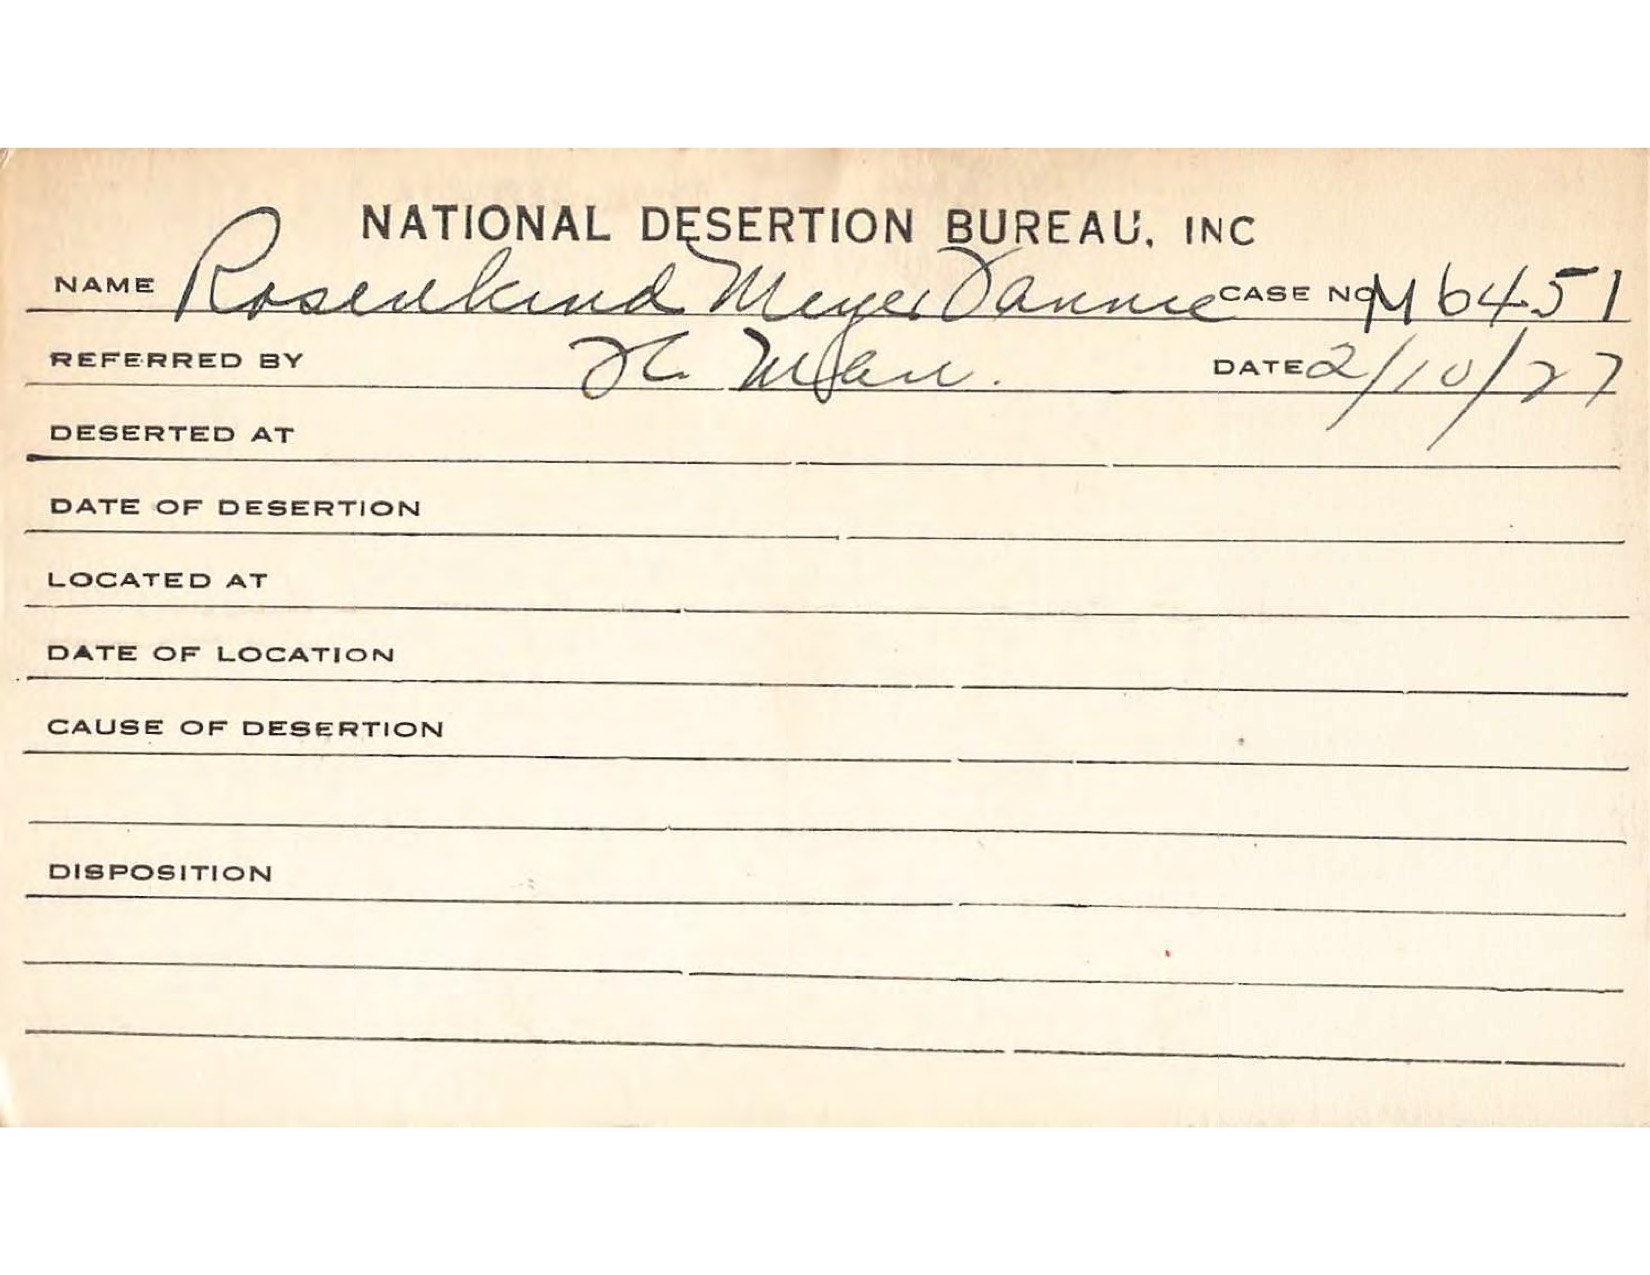 NATIONAL DESERTION BUREAU, INC
NAME Rosenkind Meyer Fannie CASE NO M6451
REFERRED BY DATE 2/10/27
DESERTED AT
DATE OF DESERTION
LOCATED AT
DATE OF LOCATION
CAUSE OF DESERTION
DISPOSITION